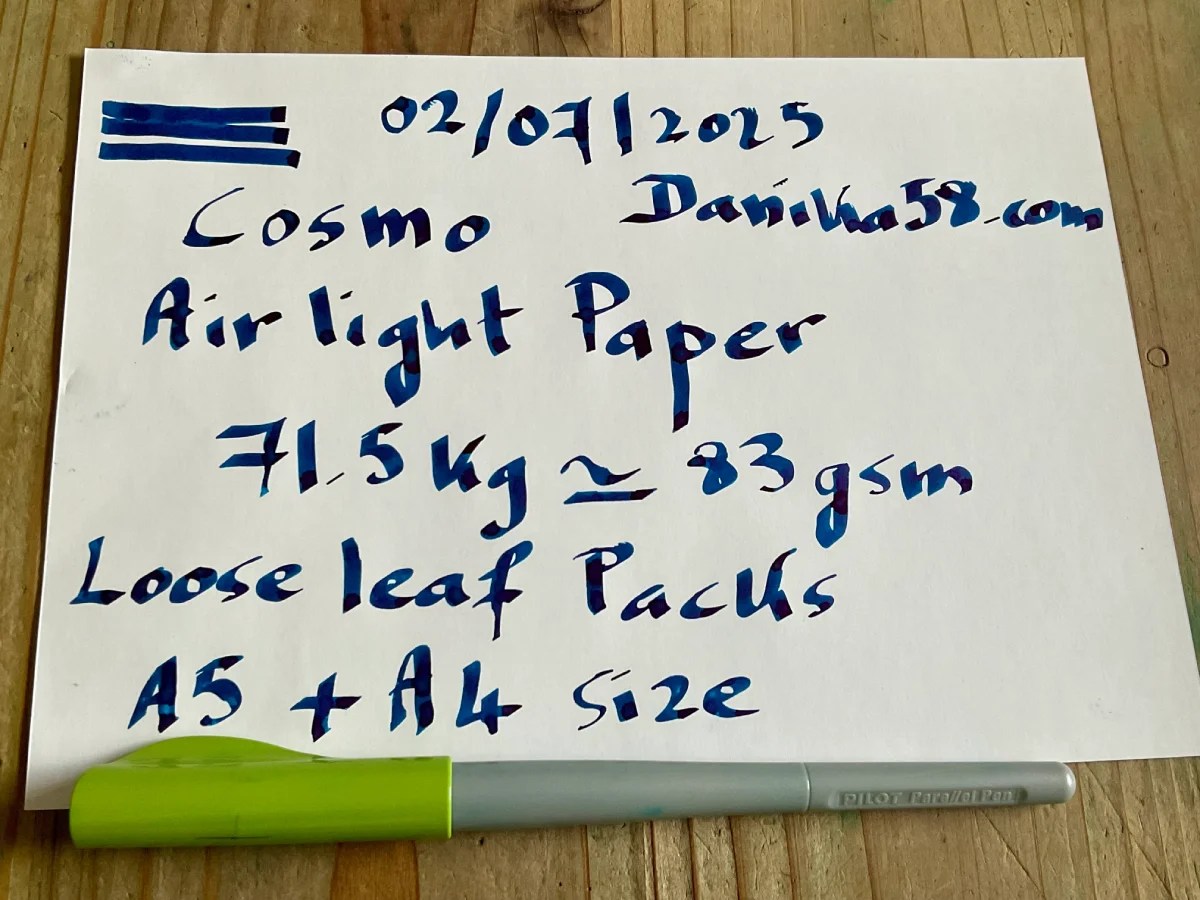 02/07/2025
Cosmo Danika58.com
Air light Paper
71.5 Kg ≃ 83 gsm
Loose leaf Packs
A5 + A4 size
PILOT Parallel Pen